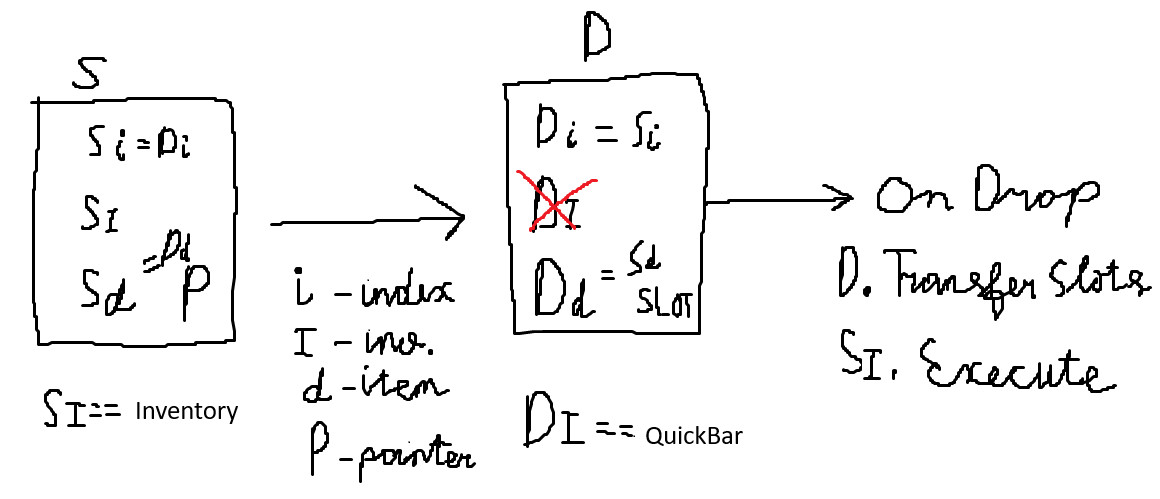 S
Si = Di
SI
Sd = Dd P
SI == Inventory
i - index
I - inv.
d - item
P - pointer
D
Di = Si
DI
Dd = Sd
SLOT
DI == QuickBar
On Drop
D. Transfer Slots
SI. Execute